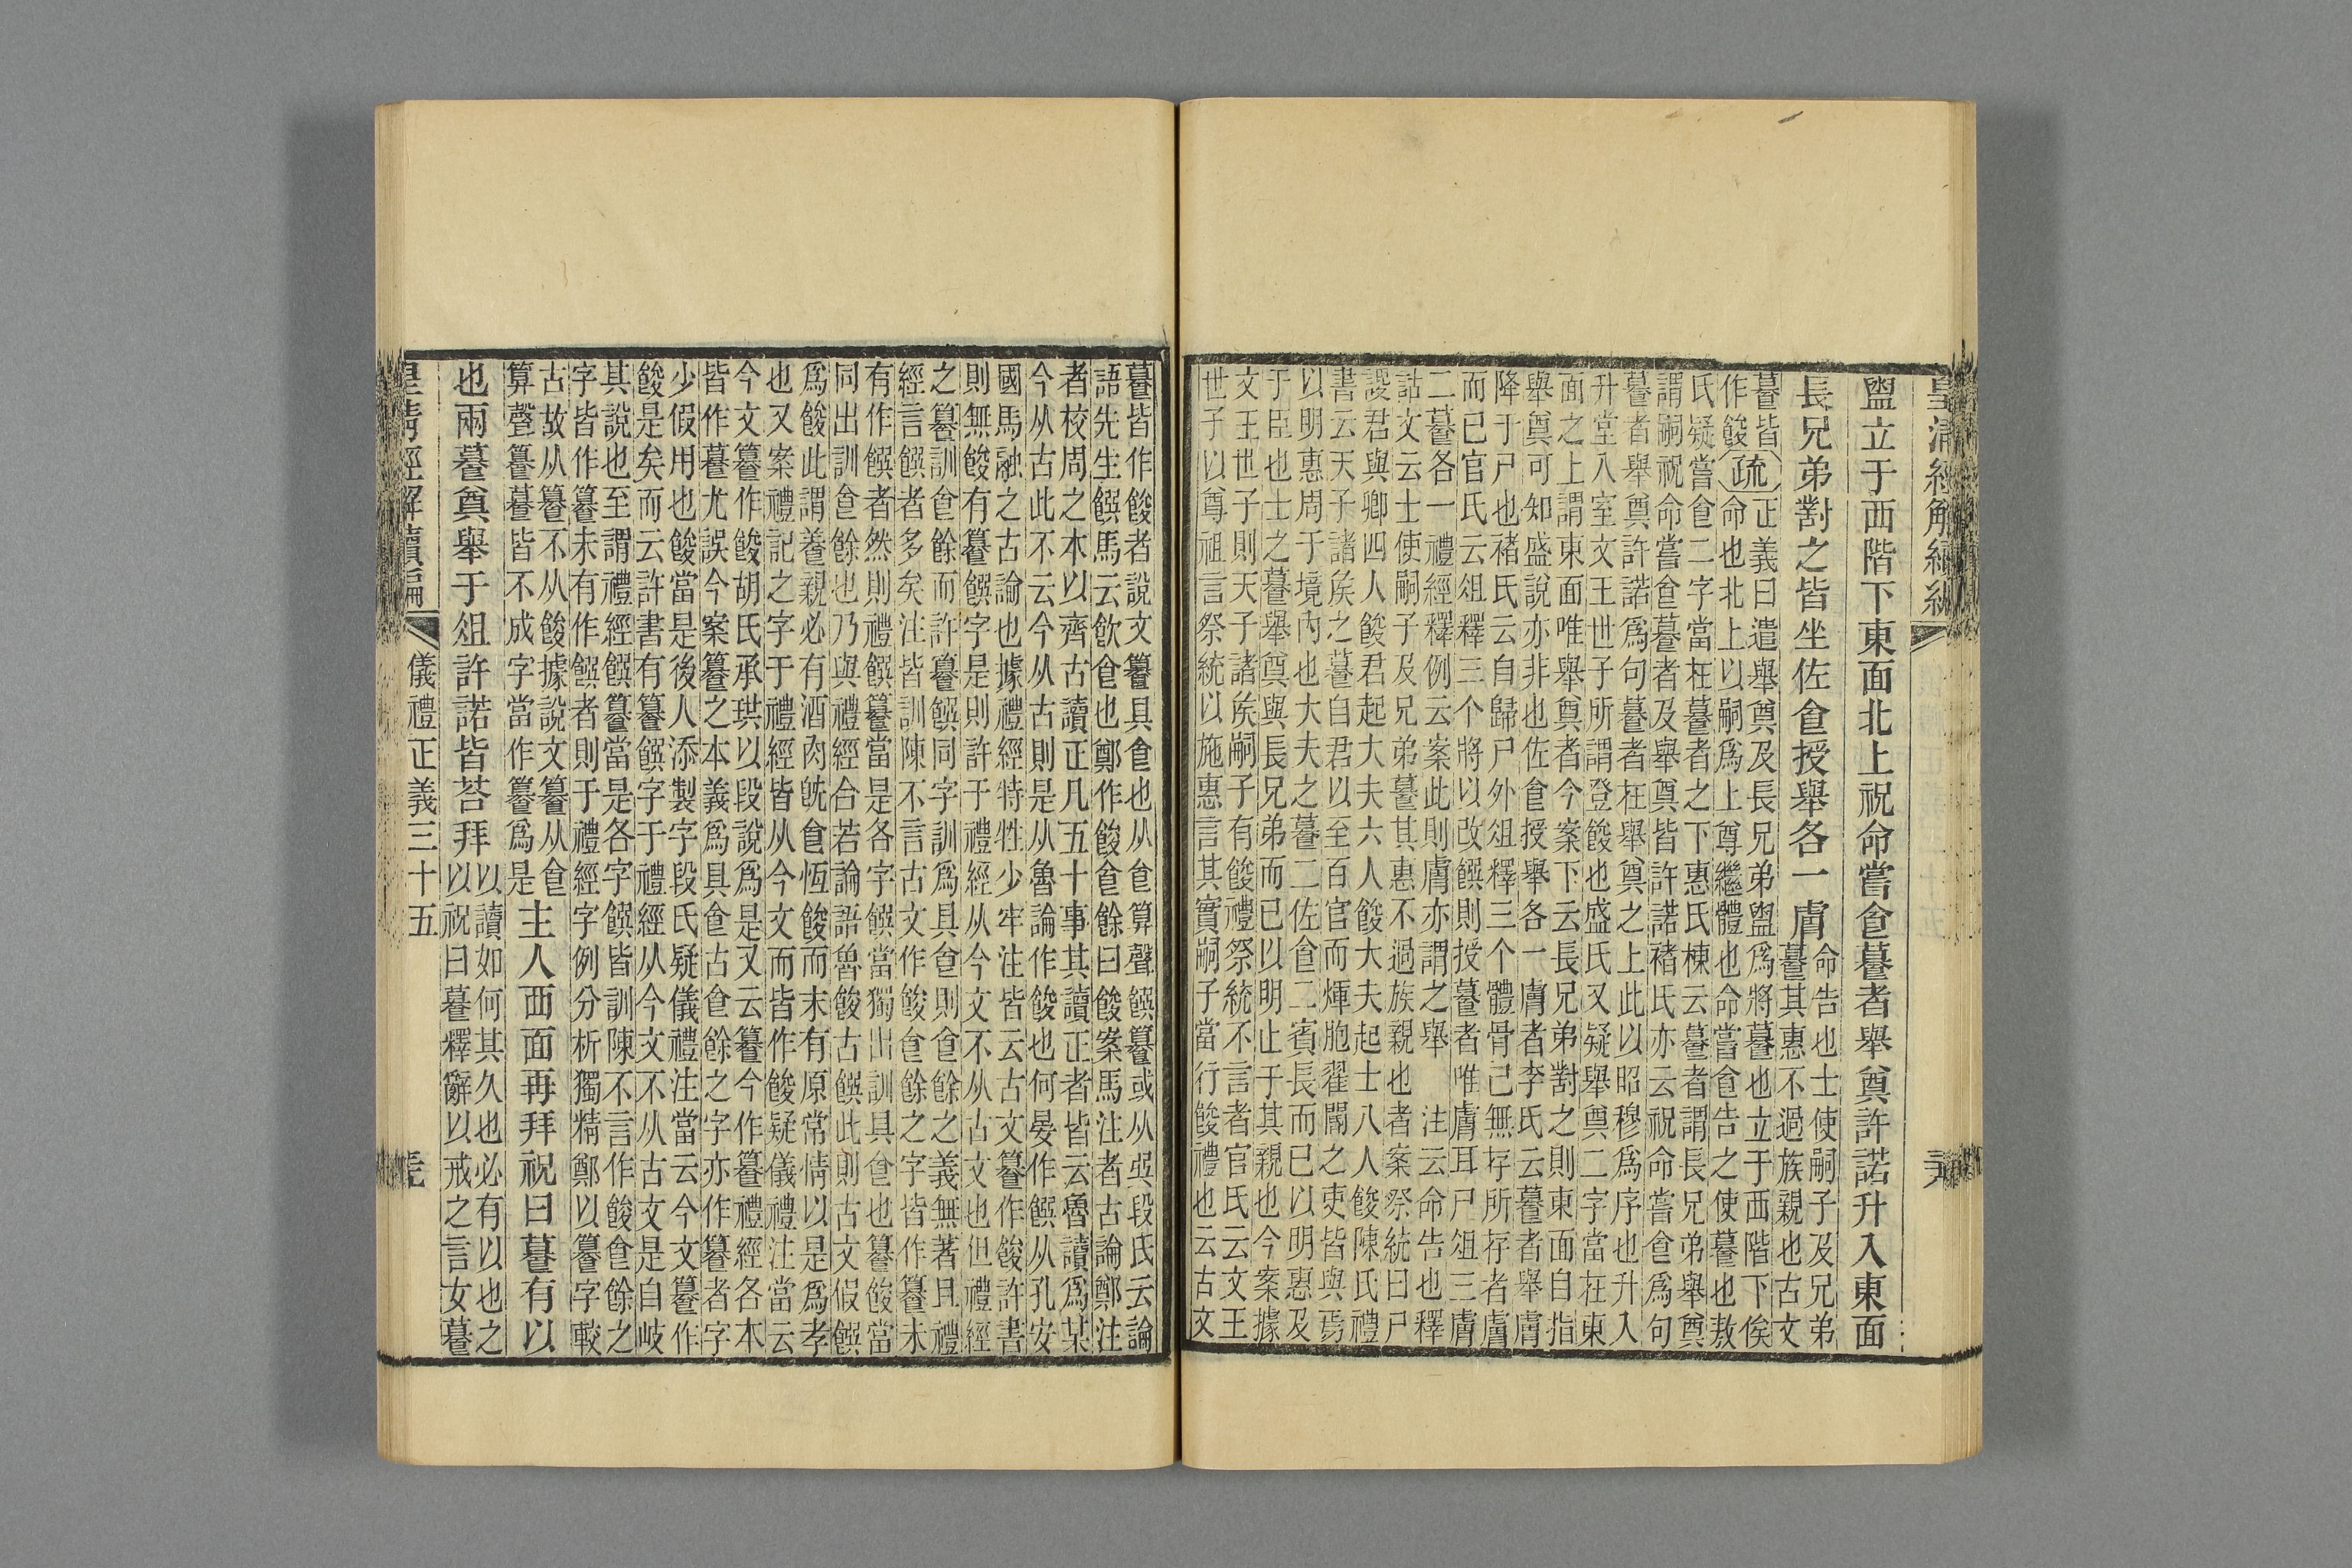 皇清經解續編
盥立于西階下東面北上祝命嘗食䉵者舉奠許諾升入東面
長兄弟對之皆坐佐食授舉各一膚
命告也士使嗣子及兄弟
䉵其惠不過族親也古文
䉵皆
作餕
疏
正義曰遣舉奠及長兄弟盥爲將䉵也立于西階下俟
命也北上以嗣爲上尊繼體也命嘗食告之使䉵也敖
氏疑嘗食二字當在䉵者之下惠氏棟云䉵者謂長兄弟舉奠
謂嗣祝命嘗食䉵者及舉奠皆許諾褚氏亦云祝命嘗食爲句
䉵者舉奠許諾爲句䉵者在舉奠之上此以昭穆爲序也升入
升堂入室文王世子所謂登餕也盛氏又疑舉奠二字當在東
面之上謂東面唯舉奠者今案下云長兄弟對之則東面自指
舉奠可知盛說亦非也佐食授舉各一膚者李氏云䉵者舉膚
降于尸也褚氏云自歸尸外俎釋三个體骨已無存所存者膚
而已官氏云俎釋三个將以改饌則授䉵者唯膚耳尸俎三膚
二䉵各一 禮經釋例云案此則膚亦謂之舉 注云命告也釋
詁文云士使嗣子及兄弟䉵其惠不過族親也者案祭統曰尸
謖君與卿四人餕君起大夫六人餕大夫起士八人餕陳氏禮
書云天子諸侯之䉵自君以至百官而煇胞翟閽之吏皆與焉
以明惠周于境內也大夫之䉵二佐食二賓長而已以明惠及
于臣也士之䉵舉奠與長兄弟而已以明止于其親也今案據
文王世子則天子諸侯嗣子有餕禮祭統不言者官氏云文王
世子以尊祖言祭統以施惠言其實嗣子當行餕禮也云古文
䉵皆作餕者說文籑具食也从食算聲饌籑或从巽段氏云論
語先生饌馬云飲食也鄭作餕食餘曰餕案馬注者古論鄭注
者校周之本以齊古讀正凡五十事其讀正者皆云魯讀爲某
今从古此不云今从古則是从魯論作餕也何晏作饌从孔安
國馬融之古論也據禮經特牲少牢注皆云古文籑作餕許書
則無餕有籑饌字是則許于禮經从今文不从古文也但禮經
之籑訓食餘而許籑饌同字訓爲具食則食餘之義無著且禮
經言饌者多矣注皆訓陳不言古文作餕食餘之字皆作籑未
有作饌者然則禮饌籑當是各字饌當獨出訓具食也籑餕當
同出訓食餘也乃與禮經合若論語魯餕古饌此則古文假饌
爲餕此謂養親必有酒肉旣食恆餕而末有原常情以是爲孝
也又案禮記之字于禮經皆从今文而皆作餕疑儀禮注當云
今文籑作餕胡氏承珙以段說爲是又云籑今作籑禮經各本
皆作䉵尤誤今案籑之本義爲具食古食餘之字亦作籑者字
少假用也餕當是後人添製字段氏疑儀禮注當云今文籑作
餕是矣而云許書有籑饌字于禮經从今文不从古文是自岐
其說也至謂禮經饌籑當是各字饌皆訓陳不言作餕食餘之
字皆作籑未有作饌者則于禮經字例分析獨精鄭以籑字較
古故从籑不从餕據說文籑从食
算聲籑䉵皆不成字當作籑爲是
主人西面再拜祝曰䉵有以
也兩䉵奠舉于俎許諾皆荅拜
以讀如何其久也必有以也之
以祝曰䉵釋辭以戒之言女䉵
皇清經解續編
儀禮正義三十五